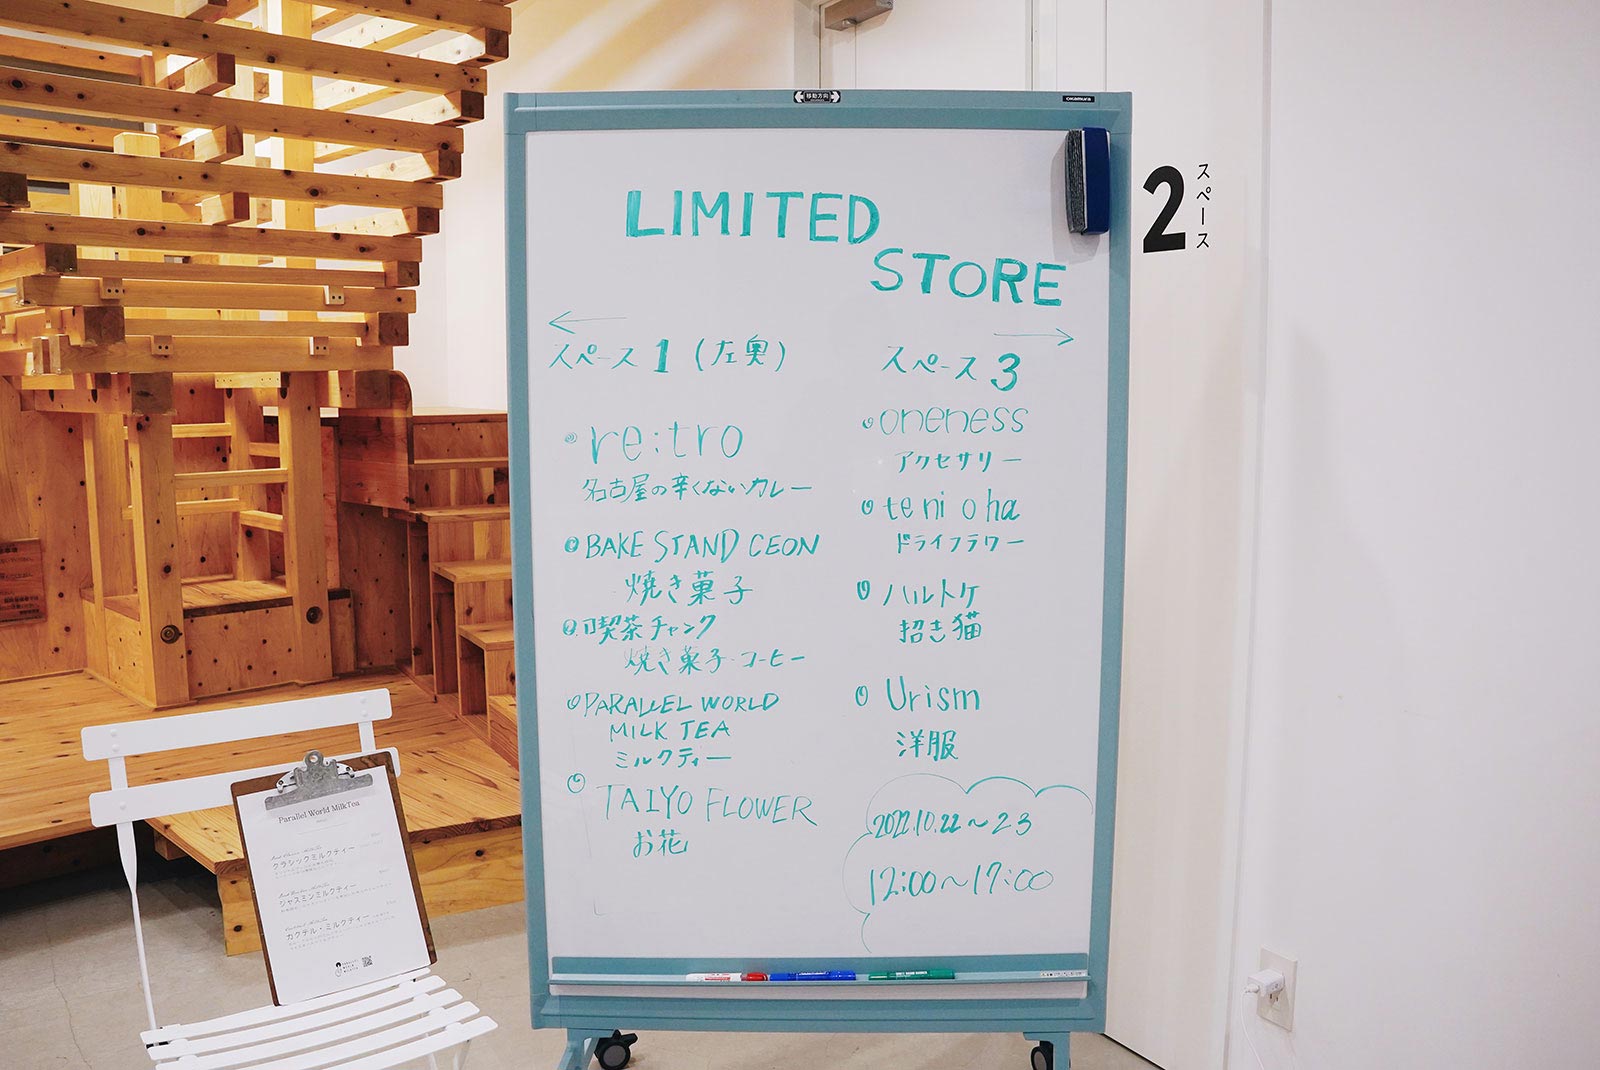 移動方向
okamura
LIMITED
STORE
スペース1(左奥)
re:tro
名古屋の辛くないカレー
BAKE STAND CEON
焼き菓子
喫茶チャンク
焼き菓子・コーヒー
PARALLEL WORLD
MILK TEA
ミルクティー
TAIYO FLOWER
お花
スペース3
oneness
アクセサリー
teni o ha
ドライフラワー
ハルトケ
招き猫
Urism
洋服
2022.10.22〜23
12:00〜17:00
2
スペース
Parallel World MilkTea
クラシックミルクティー
ジャスミンミルクティー
カクテル・ミルクティー